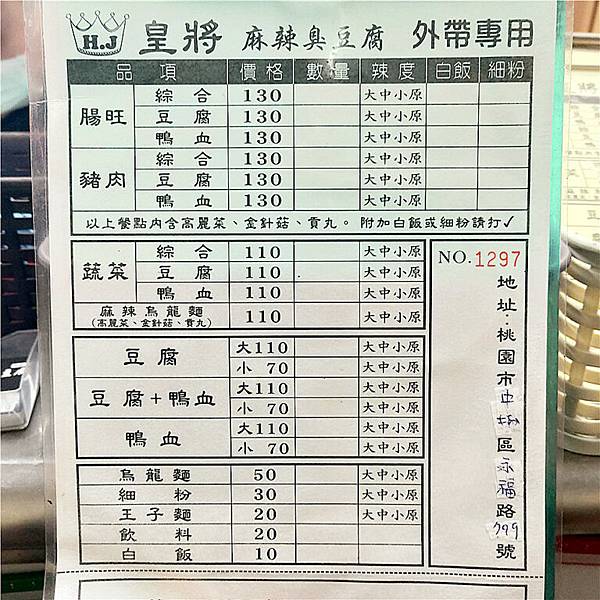 H.J 皇將 麻辣臭豆腐 外帶專用
品項 價格 數量 辣度 白飯 細粉
腸旺
綜合 130 大中小原
豆腐 130 大中小原
鴨血 130 大中小原
豬肉
綜合 130 大中小原
豆腐 130 大中小原
鴨血 130 大中小原
以上餐點內含高麗菜、金針菇、貢丸。 附加白飯或細粉請打✓
蔬菜
綜合 110 大中小原
豆腐 110 大中小原
鴨血 110 大中小原
麻辣烏龍麵 110 大中小原
(高麗菜、金針菇、貢丸)
豆腐
大110 大中小原
小 70 大中小原
豆腐+鴨血
大110 大中小原
小 70 大中小原
鴨血
大110 大中小原
小 70 大中小原
烏龍麵 50 大中小原
細粉 30 大中小原
王子麵 20 大中小原
飲料 20
白飯 10
NO.1297
地址:桃園市中壢區永福路799號